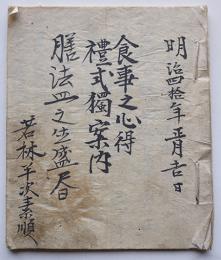 明治四拾年正月吉日
食事之心得
禮式獨案内
膳法皿之仕盛尽
若林平次素順